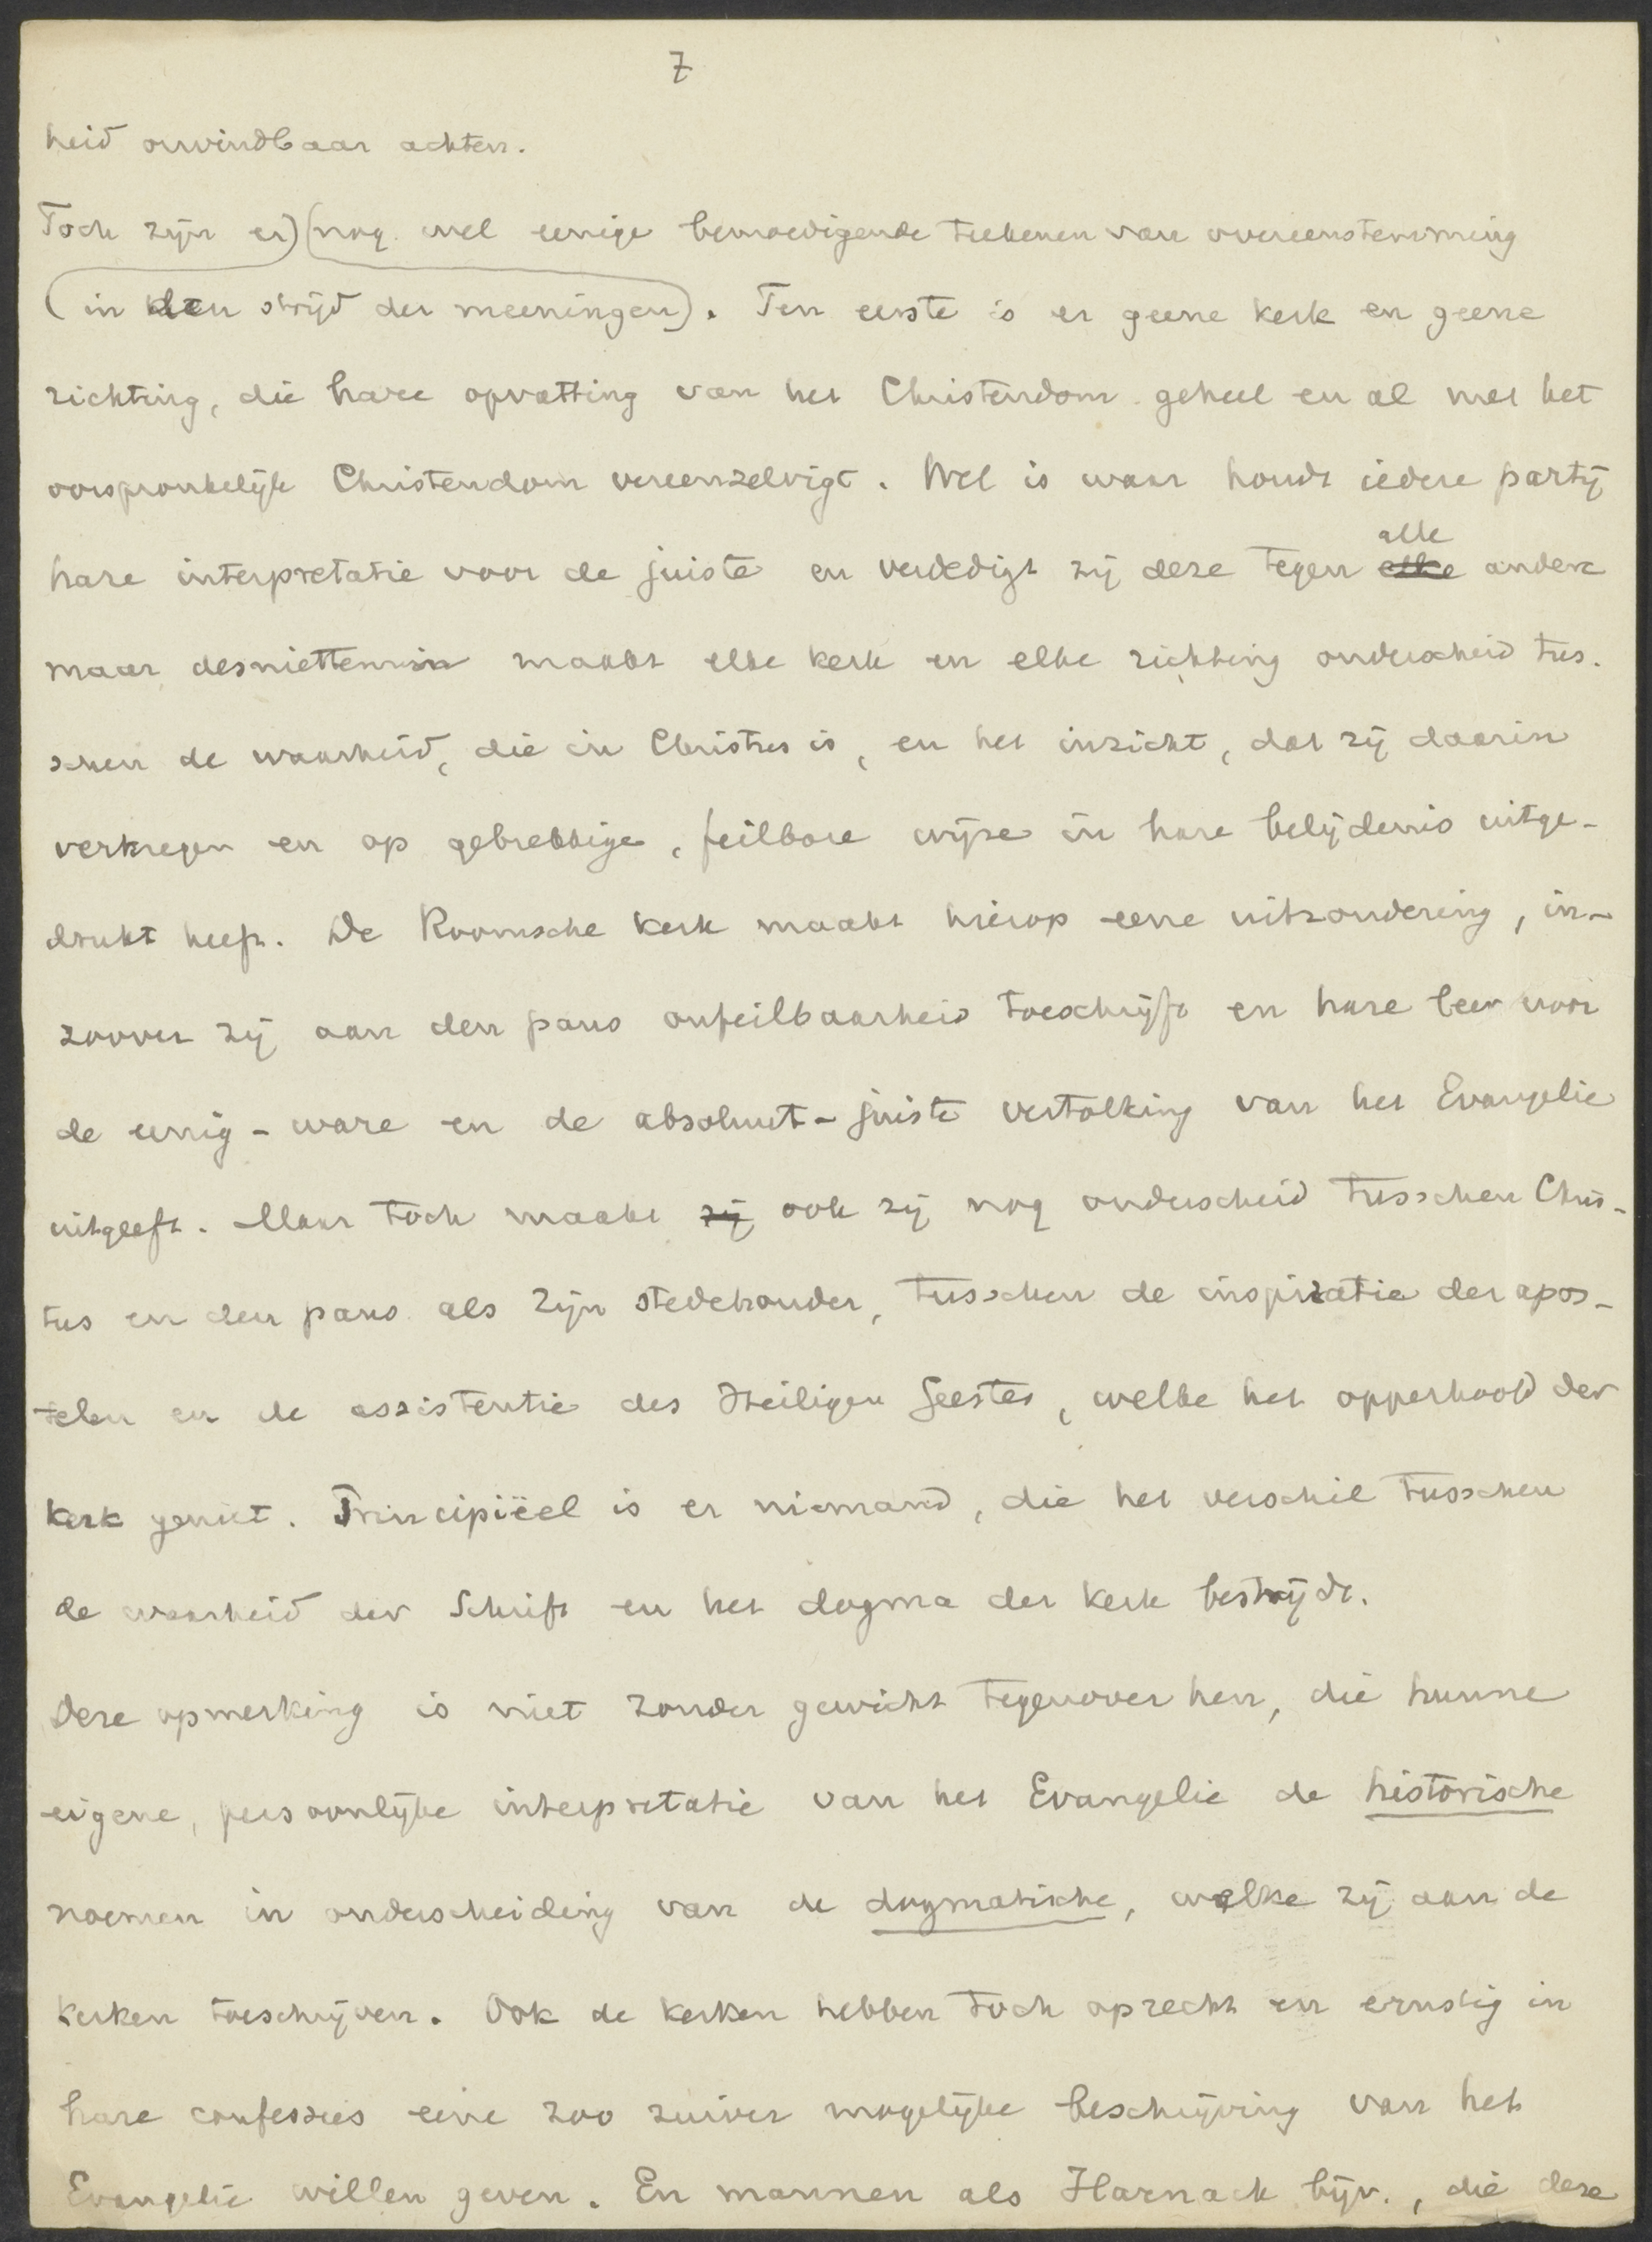 7
heid onvindbaar achten.
Toch zijn er) (nog wel eenige bemoedigende teekenen van overeenstemming
(in den strijd der meeningen). Ten eerste is er geene kerk en geene
richting, die hare opvatting van het Christendom geheel en al met het
oorspronkelijk Christendom vereenzelvigt. Wel is waar houdt iedere partij
alle
hare interpretatie voor de juiste en verdedigt zij deze tegen elke andere
maar desniettemin maakt elke kerk en elke richting onderscheid tus-
schen de waarheid, die in Christus is, en het inzicht, dat zij daarin
verkregen en op gebrekkige, feilbare wijze in hare belijdenis uitge-
drukt heeft. De Roomsche kerk maakt hierop eene uitzondering, in-
zoover zij aan den paus onfeilbaarheid toeschrijft en hare leer voor
de eenig-ware en de absoluut-juiste vertolking van het Evangelie
uitgeeft. Maar toch maakt zij ook zij nog onderscheid tusschen Chris-
tus en den paus als zijn stedehouder, tusschen de inspiratie der apos-
telen en de assistentie des Heiligen Geestes, welke het opperhoofd der
kerk geniet. Principiëel is er niemand, die het verschil tusschen
de waarheid der Schrift en het dogma der kerk bestrijdt.
Deze opmerking is niet zonder gewicht tegenover hen, die hunne
eigene, persoonlijke interpretatie van het Evangelie de historische
noemen in onderscheiding van de dogmatische, welke zij aan de
kerken toeschrijven. Ook de kerken hebben toch oprecht en ernstig in
hare confessies eene zoo zuiver mogelijke beschrijving van het
Evangelie willen geven. En mannen als Harnack bijv., die deze